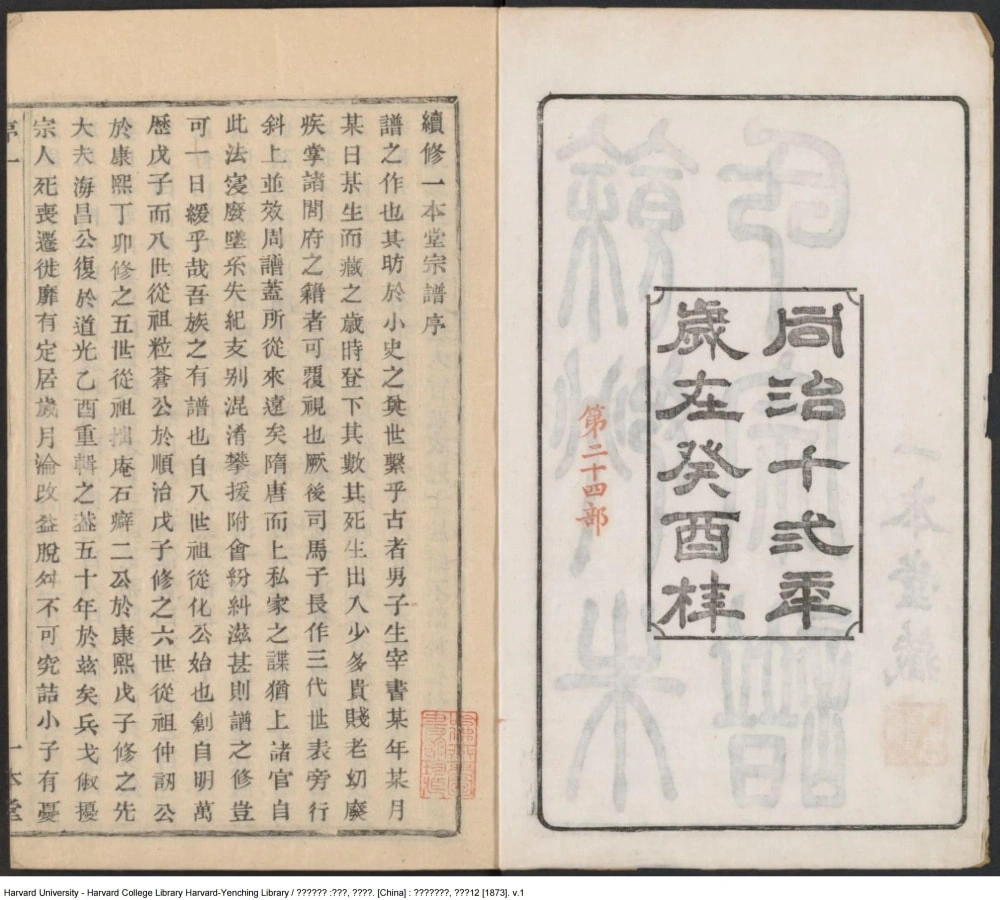 同治十弍年
歲在癸酉桂
第二十四部
續修一本堂宗譜序
譜之作也其昉於小史之奠世繫乎古者男子生宰書某年某月
某日某生而藏之歲時登下其數其死生出入少多貴賤老幼廢
疾掌諸閭府之籍者可覆視也厥後司馬子長作三代世表旁行
斜上並效周譜蓋所從來遠矣隋唐而上私家之諜猶上諸官自
此法寖廢墜系失紀支別混淆攀援附會紛糾滋甚則譜之修豈
可一日緩乎哉吾族之有譜也自八世祖從化公始也創自明萬
歷戊子而八世從祖粒蒼公於順治戊子修之六世從祖仲訒公
於康熙丁卯修之五世從祖拙庵石癖二公於康熙戊子修之先
大夫海昌公復於道光乙酉重輯之蓋五十年於茲矣兵戈俶擾
宗人死喪遷徙靡有定居歲月淪改益脫舛不可究詰小子有憂
序一
一本堂
Harvard University - Harvard College Library Harvard-Yenching Library / ?????? :???, ????. [China] : ???????, ???12 [1873]. v.1